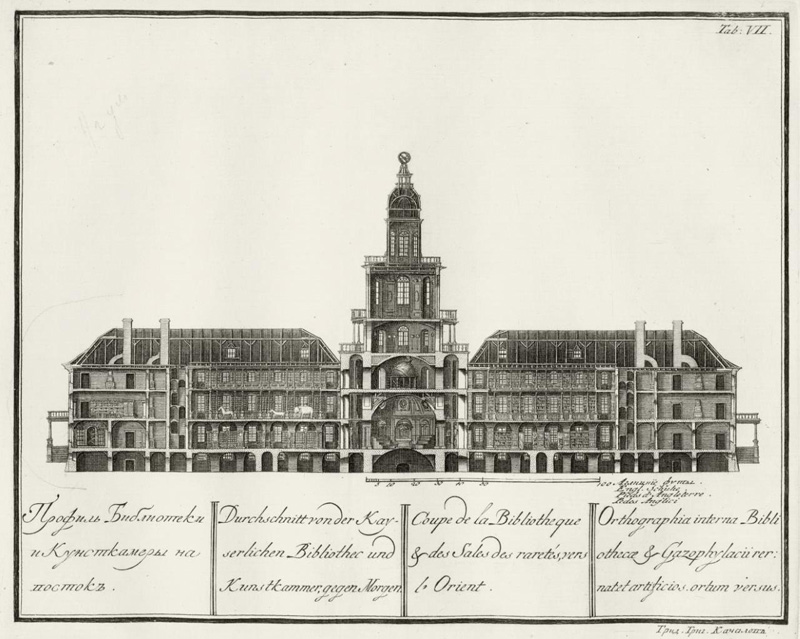 Tab: VII.
100 Аглинскіе футы.
Engl. Schuhe
Pieds d'Angleterre.
Pedes Anglici
Профиль Библиотеки
и Кунсткамеры на
востокъ.
Durchschnitt von der Kay-
serlichen Bibliothec und
Kunstkammer, gegen Morgen.
Coupe de la Bibliotheque
& des Sales des raretés, vers
l'Orient.
Orthographia interna Bibli
othecæ & Gazophylacii rer:
nat et artificios. ortum versus.
Грид. Григ. Качаловъ